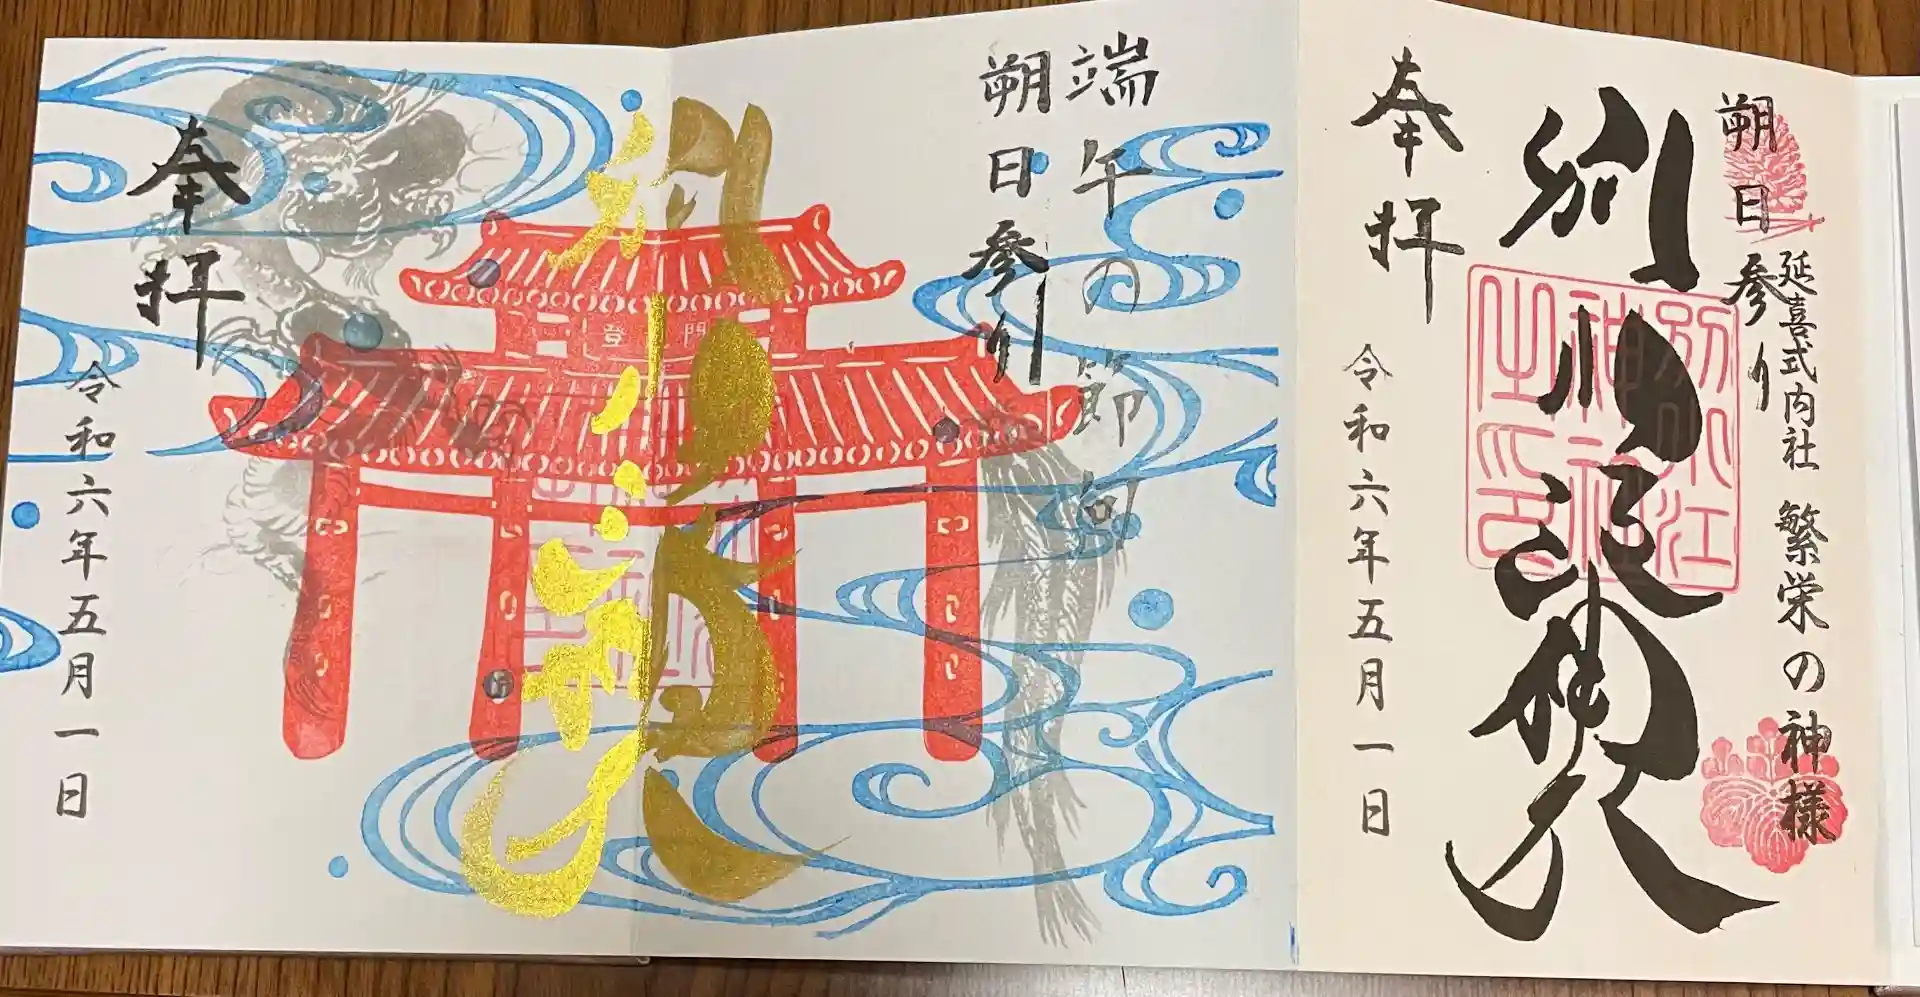 朔日参り
延喜式内社 繁栄の神様
別小江神社
別小江
神社
之印
奉拝
令和六年五月一日
端午の節句
朔日参り
別小江神社
登門
奉拝
令和六年五月一日